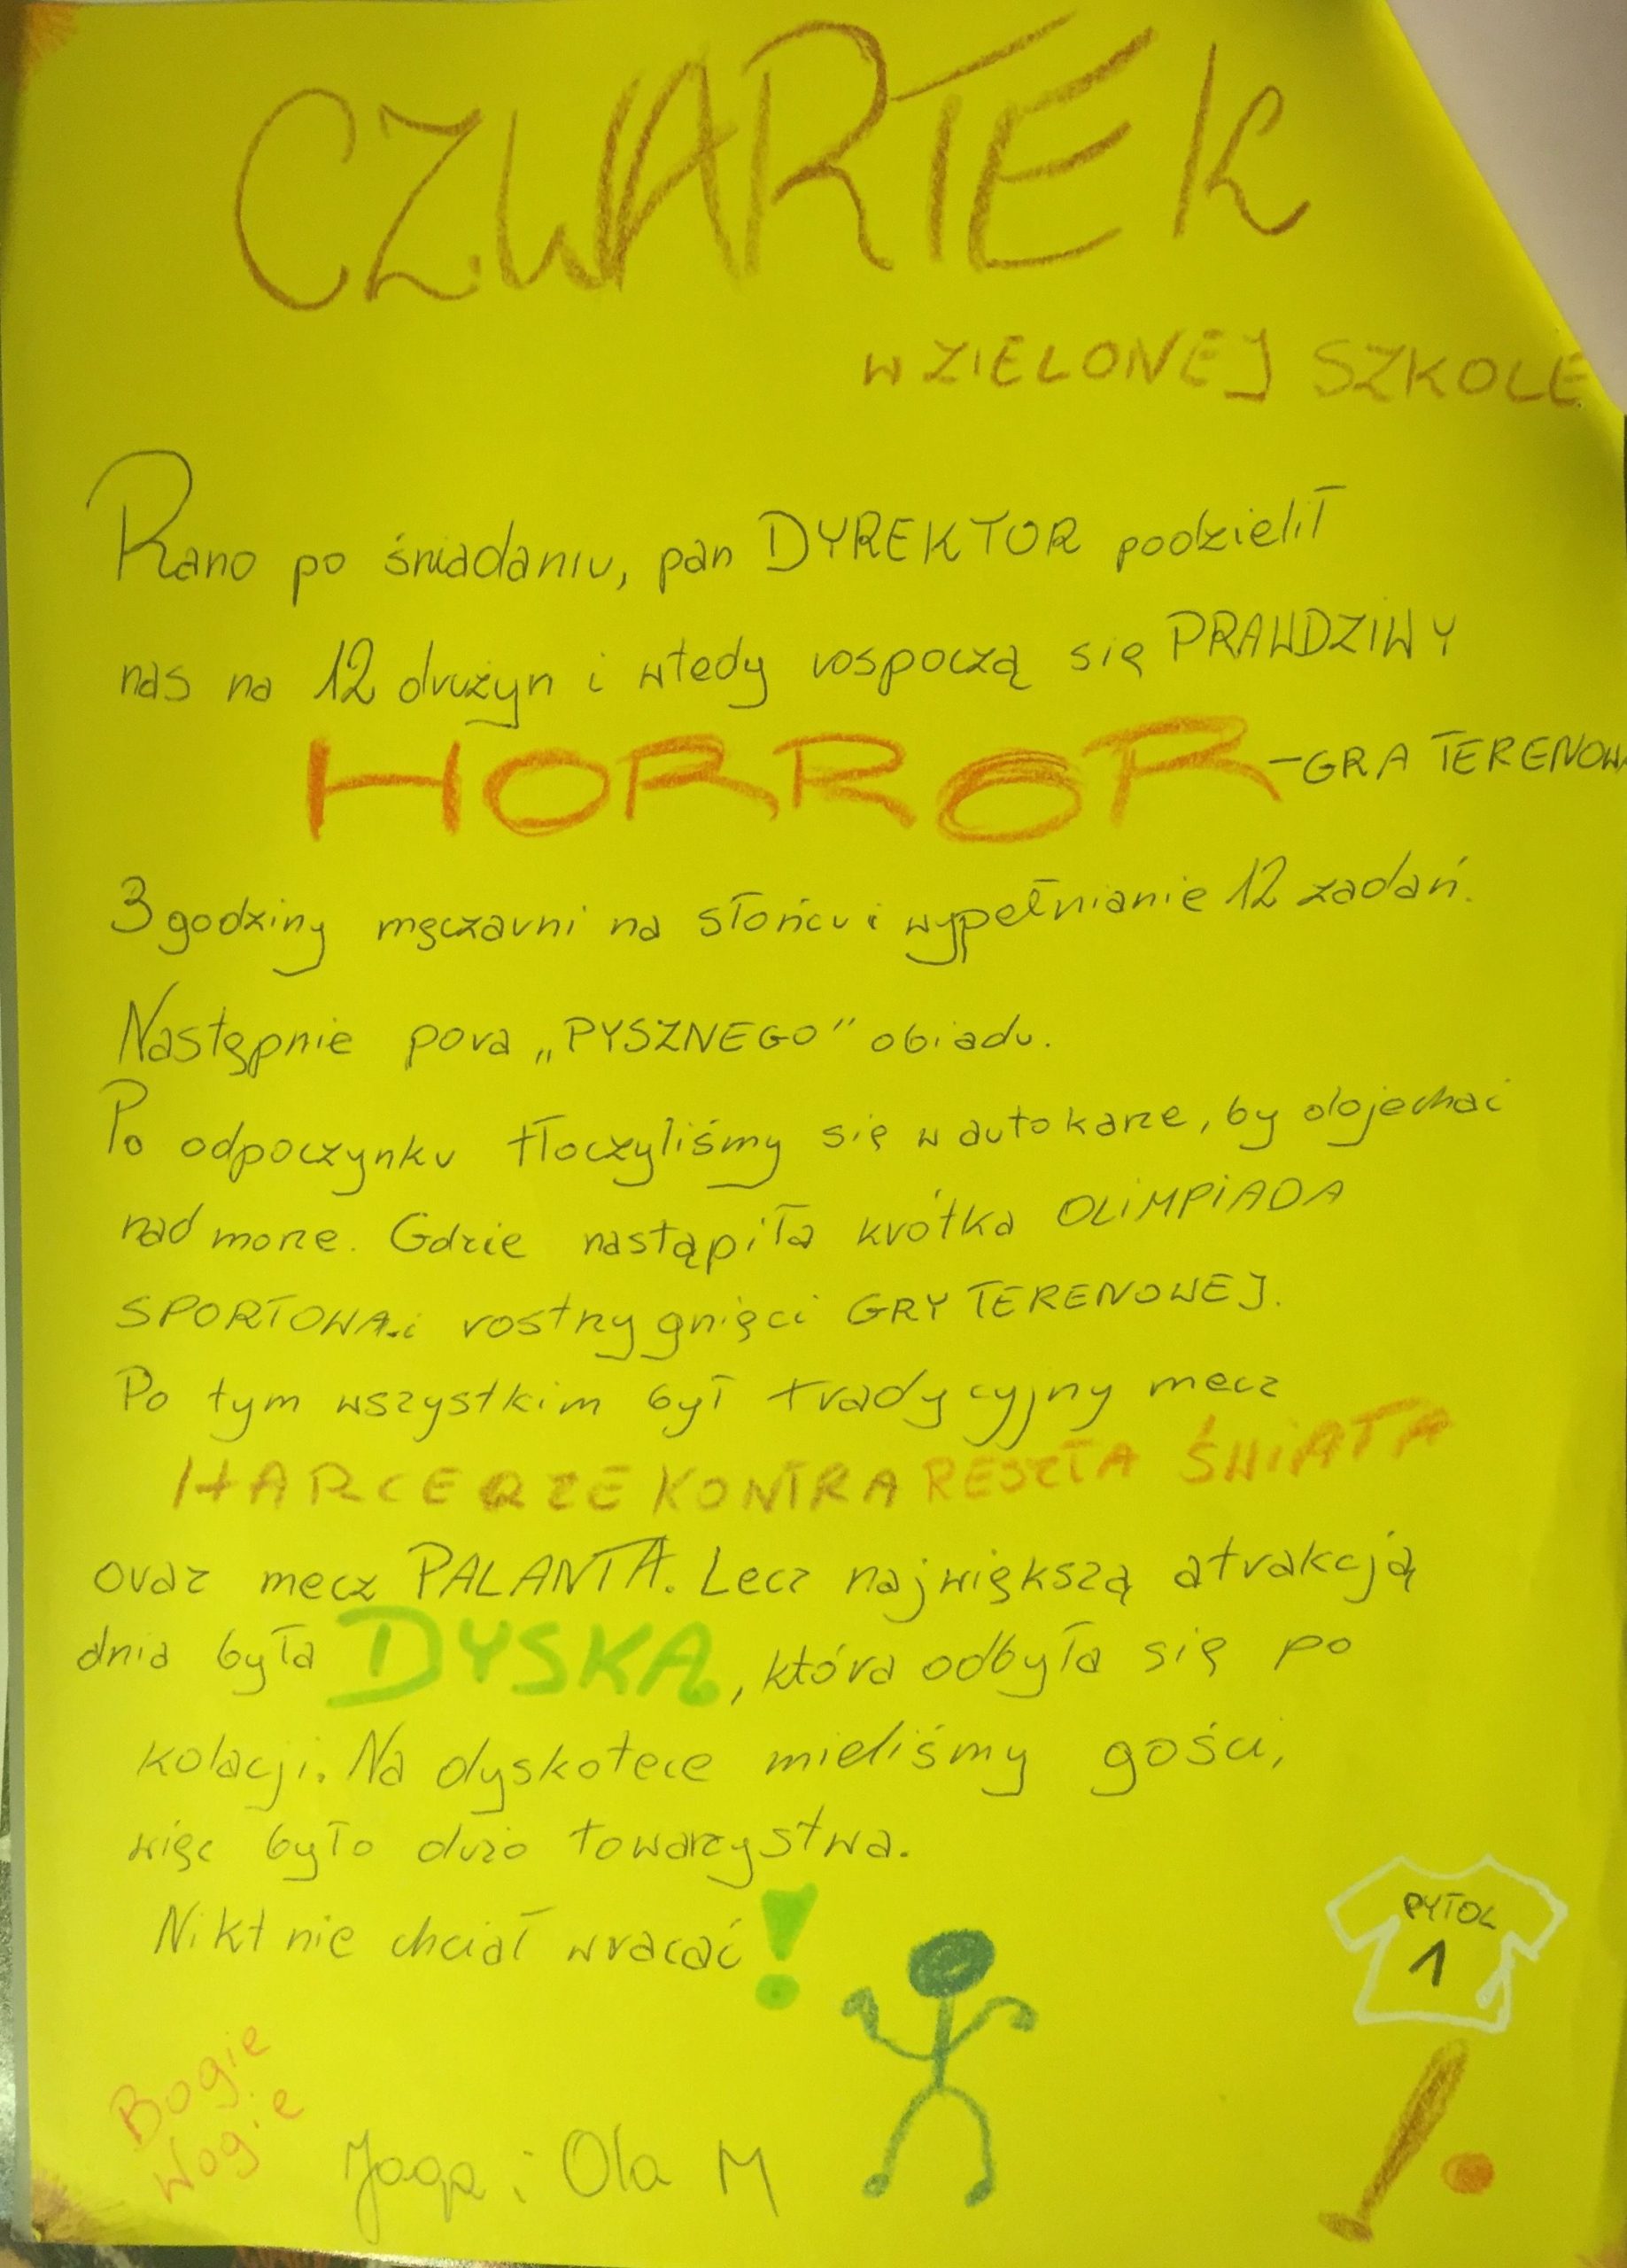 CZWARTEK
W ZIELONEJ SZKOLE
Rano po śniadaniu, pan DYREKTOR podzielił
nas na 12 drużyn i wtedy rospoczą się PRAWDZIWY
HORROR - GRA TERENOWA
3 godziny męczarni na słońcu i wypełnianie 12 zadań.
Następnie pora „PYSZNEGO” obiadu.
Po odpoczynku tłoczyliśmy się w autokarze, by dojechać
nad morze. Gdzie nastąpiła krótka OLIMPIADA
SPORTOWA i rostrzygnięci GRY TERENOWEJ.
Po tym wszystkim był tradycyjny mecz
HARCERZE KONTRA RESZTA ŚWIATA
oraz mecz PALANTA. Lecz największą atrakcją
dnia była DYSKA, która odbyła się po
kolacji. Na dyskotece mieliśmy gości,
więc było dużo towarzystwa.
Nikt nie chciał wracać!
PYTOL
1
Bogie
Wogie
i Ola M